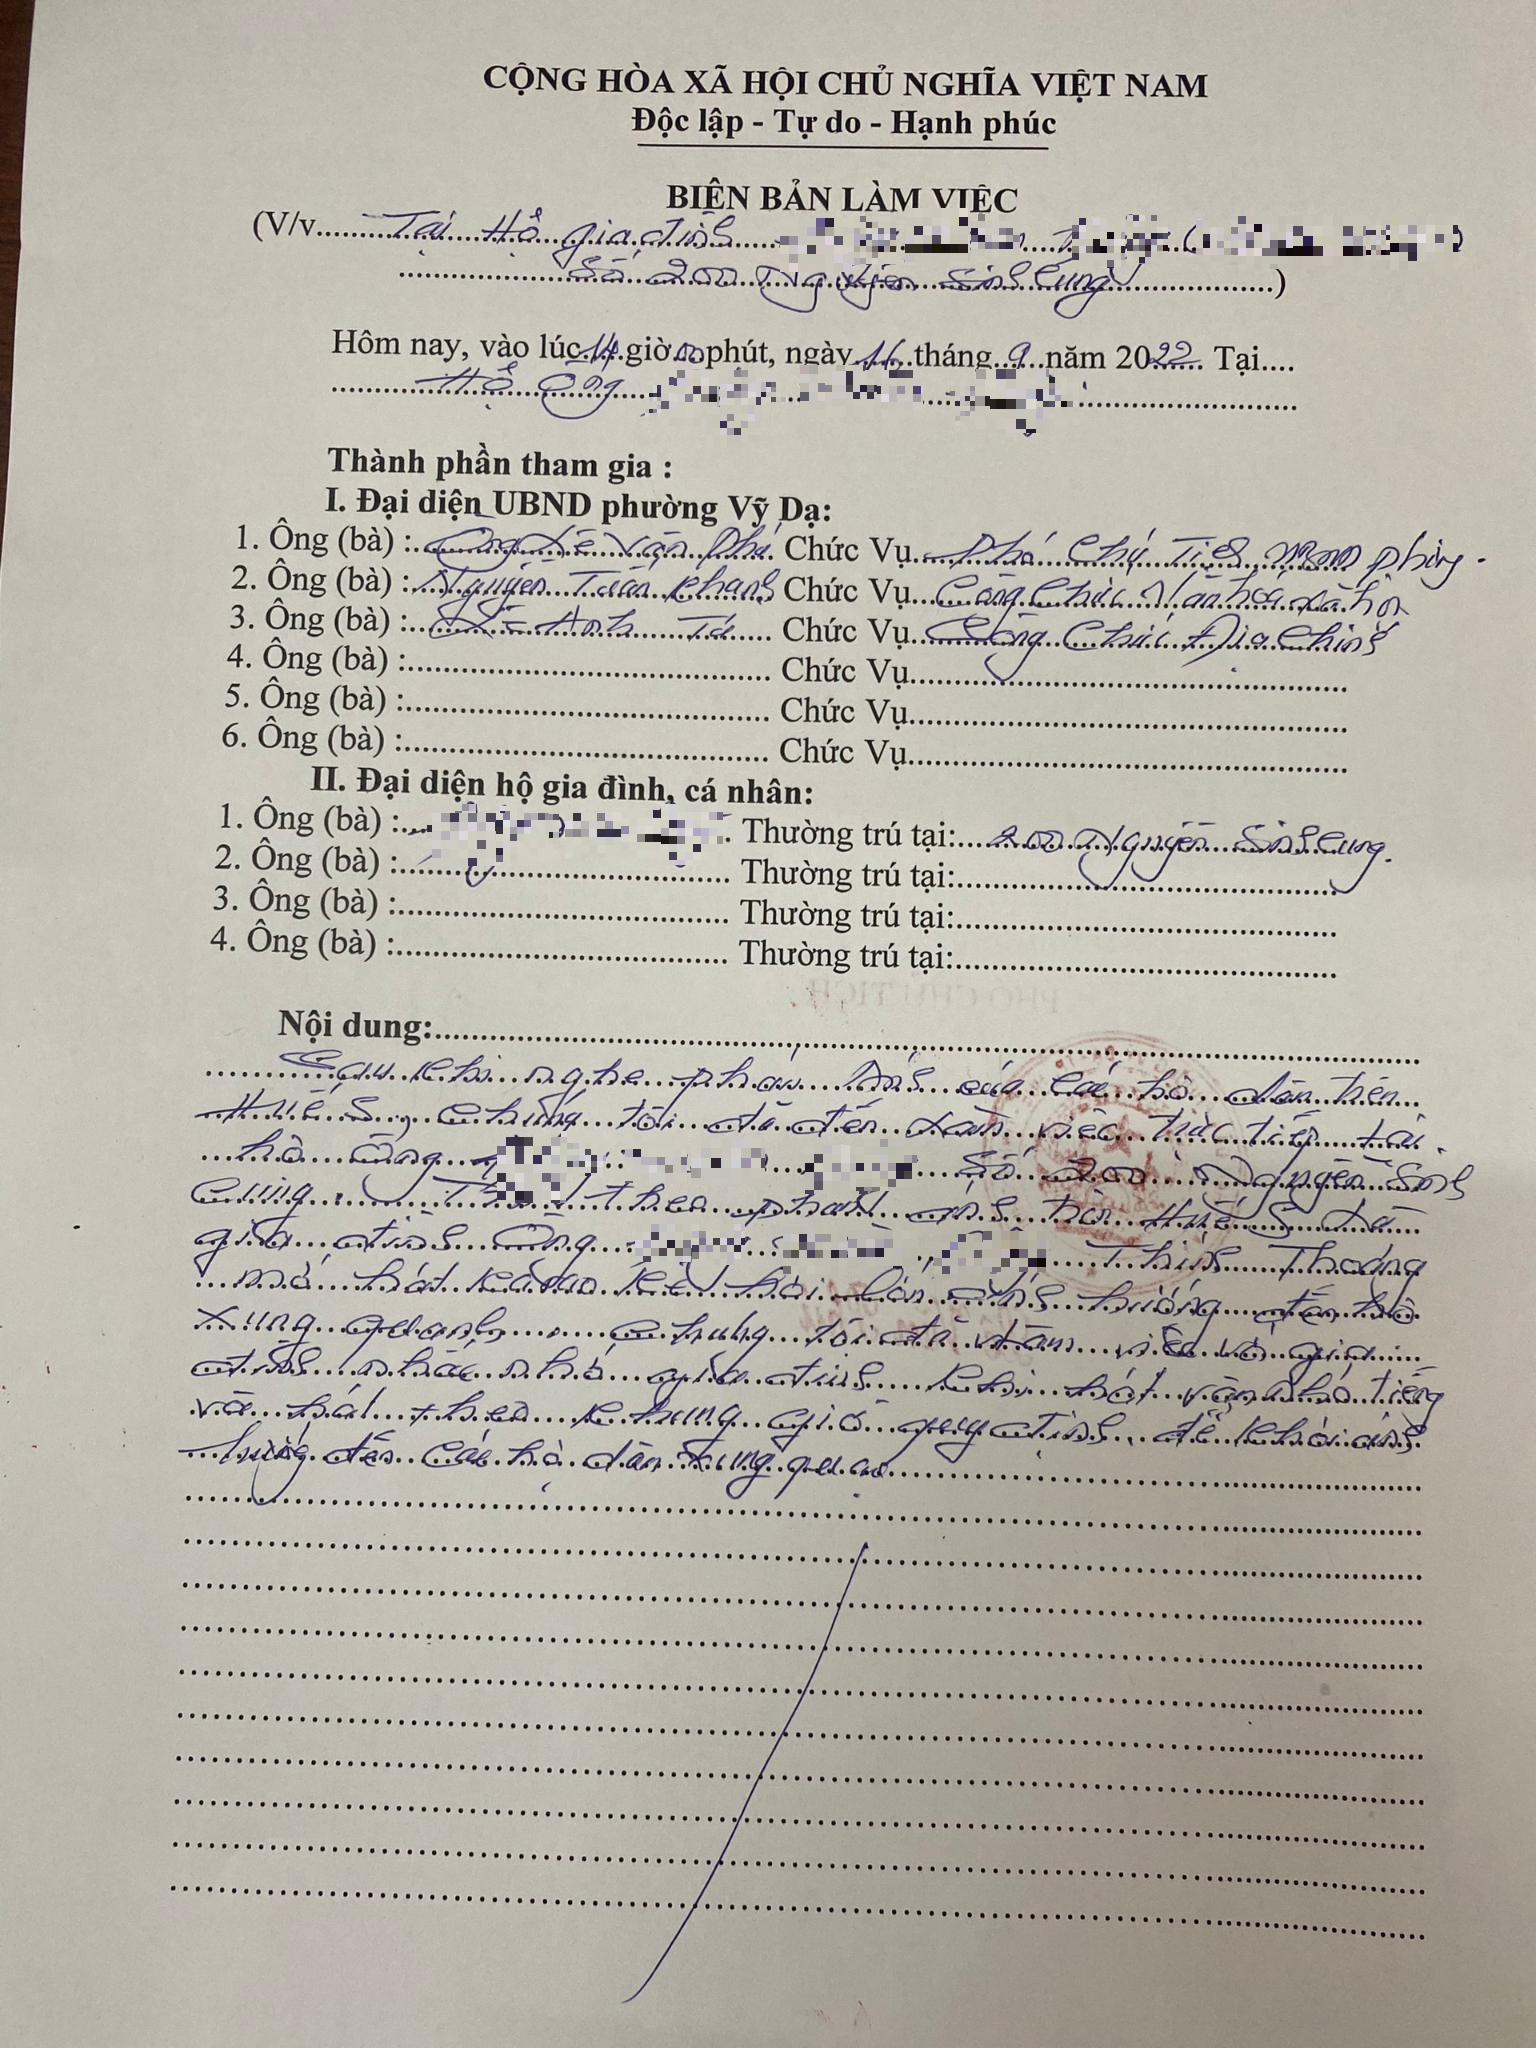 CỘNG HÒA XÃ HỘI CHỦ NGHĨA VIỆT NAM
Độc lập - Tự do - Hạnh phúc
BIÊN BẢN LÀM VIỆC
(V/v Tại Hộ gia đình
Số 200 Nguyễn Sinh Cung)
Hôm nay, vào lúc 14 giờ 00 phút, ngày 16 tháng 9 năm 2022 Tại....
Hộ Ông
Thành phần tham gia :
I. Đại diện UBND phường Vỹ Dạ:
1. Ông (bà) : Ông Lê Văn Phú Chức Vụ Phó Chủ Tịch phường
2. Ông (bà) : Nguyễn Tuấn Khanh Chức Vụ Công Chức Văn hóa xã hội
3. Ông (bà) : Lê Anh Tú Chức Vụ Công Chức Địa Chính
4. Ông (bà) : Chức Vụ
5. Ông (bà) : Chức Vụ
6. Ông (bà) : Chức Vụ
II. Đại diện hộ gia đình, cá nhân:
1. Ông (bà) : Thường trú tại: 200 Nguyễn Sinh Cung.
2. Ông (bà) : Thường trú tại:
3. Ông (bà) : Thường trú tại:
4. Ông (bà) : Thường trú tại:
Nội dung:
Sau khi nghe phản ánh của các hộ dân trên
Huế S, chúng tôi đã đến làm việc trực tiếp tại
hộ Ông Số 200 Nguyễn Sinh
Cung. theo phản ánh trên Huế S là
gia đình Ông Thỉnh Thoảng
mở hát karaoke hơi lớn ảnh hưởng đến hộ
xung quanh. chúng tôi đã làm việc và gia
đình nhắc nhở gia đình khi hát vặn nhỏ tiếng
và hát theo khung giờ quy định để khỏi ảnh
hưởng đến các hộ dân xung quanh